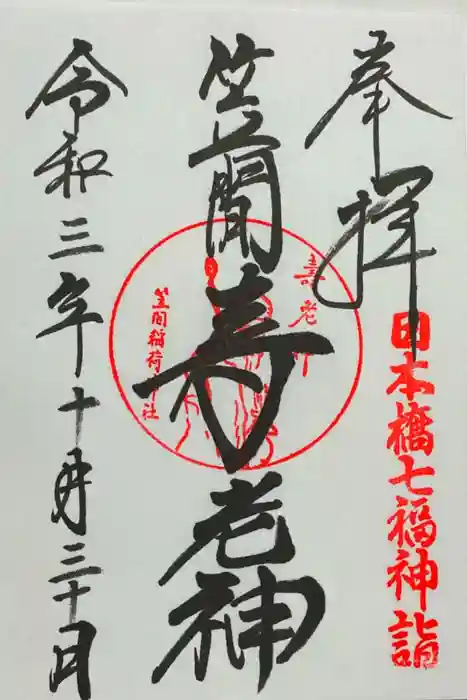 奉拝
日本橋七福神詣
笠間寿老神
寿老
笠間稲荷
社
令和三年十月三十日